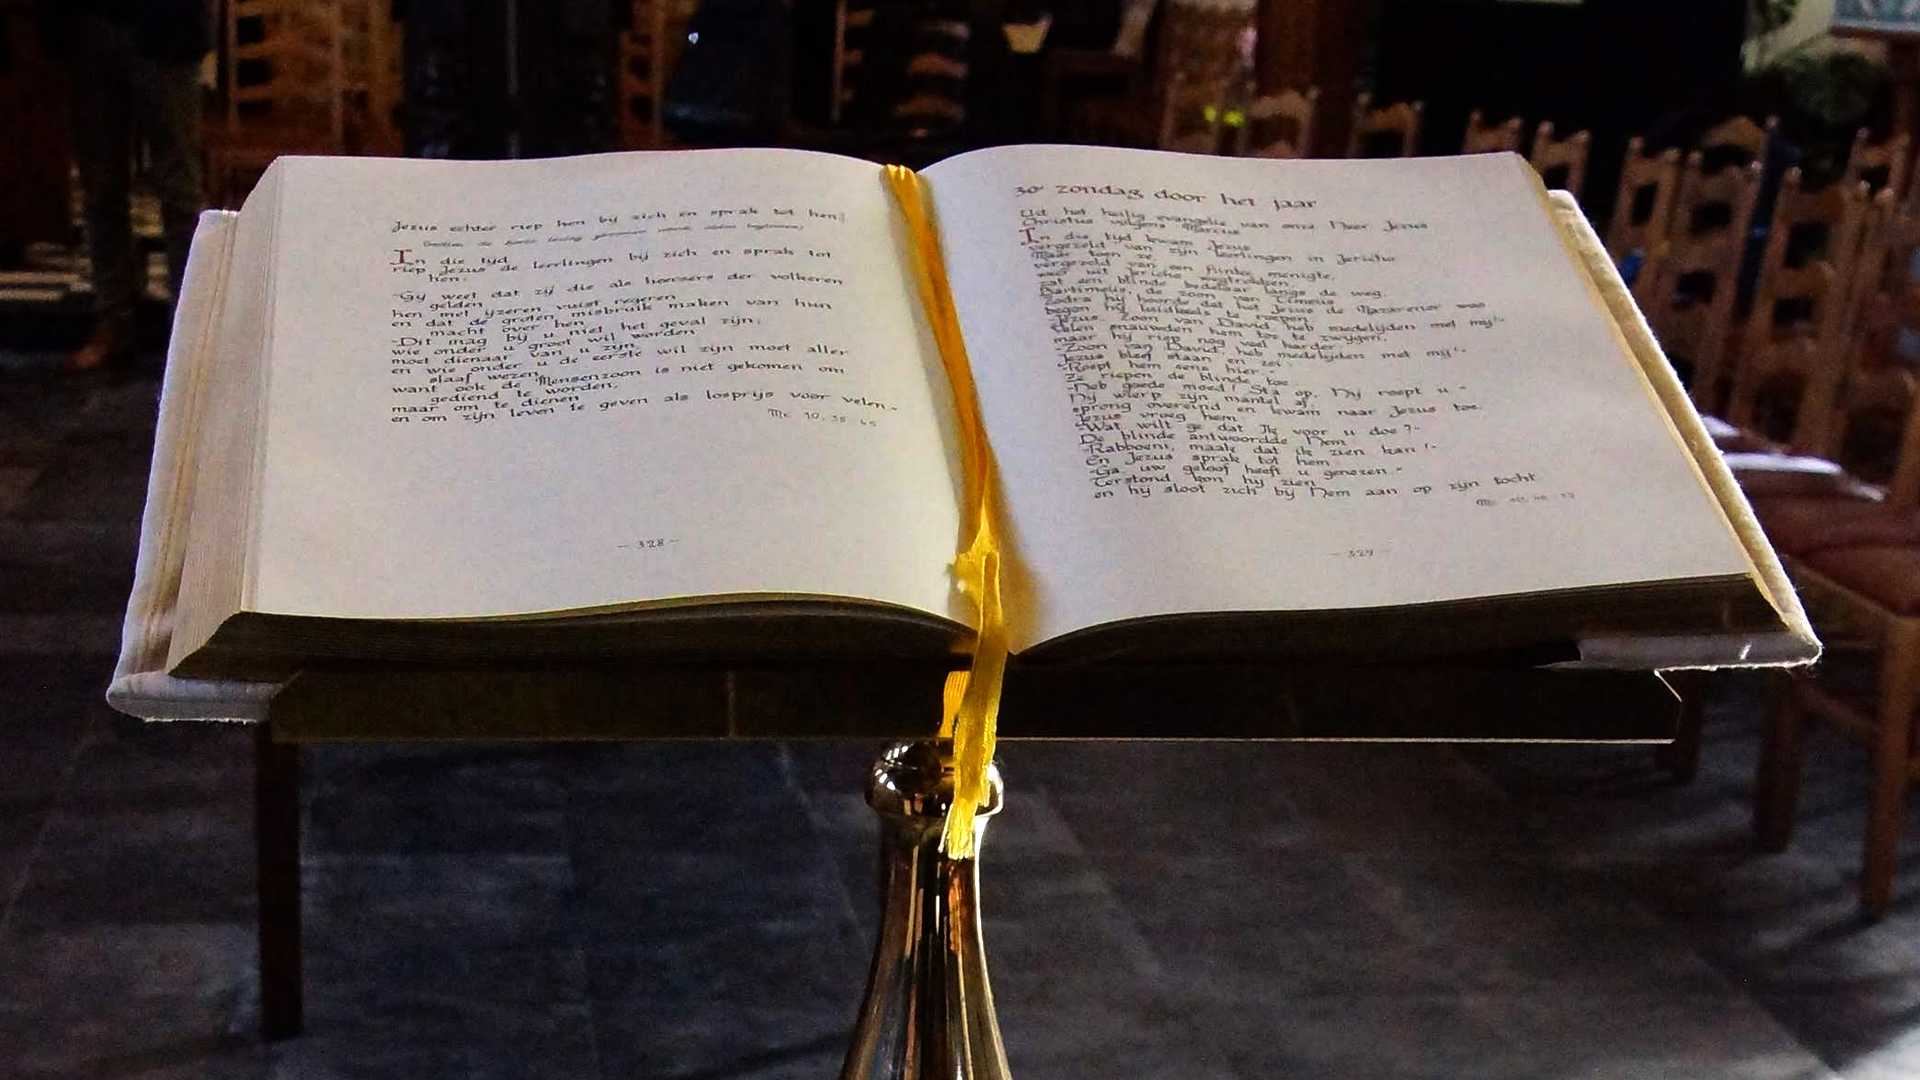 Jezus echter riep hen bij zich en sprak tot hen:
In die tijd
riep Jezus de leerlingen bij zich en sprak tot
hen:
"Gij weet dat zij die als heersers der volkeren
gelden
hen met ijzeren vuist regeren
en dat de groten misbruik maken van hun
macht over hen.
-Dit mag bij u niet het geval zijn;
wie onder u groot wil worden
moet dienaar van u zijn,
en wie onder u de eerste wil zijn moet aller
slaaf wezen,
want ook de Mensenzoon is niet gekomen om
gediend te worden,
maar om te dienen
en om zijn leven te geven als losprijs voor velen."
Mc. 10, 35-45
- 328 -
30e zondag door het jaar
Uit het heilig evangelie van onze Heer Jezus
Christus volgens Marcus
In die tijd kwam Jezus
vergezeld van zijn leerlingen in Jericho
Maar toen ze,
vergezeld van een flinke menigte,
weer uit Jericho wegtrokken
zat een blinde bedelaar langs de weg,
Bartimeüs, de zoon van Timeüs
Zodra hij hoorde dat het Jezus de Nazarener was
begon hij luidkeels te roepen
"Jezus, Zoon van David, heb medelijden met mij!"
Velen snauwden hem toe te zwijgen,
maar hij riep nog veel harder:
"Zoon van David, heb medelijden met mij!"
Jezus bleef staan en zei:
"Roept hem eens hier."
Ze riepen de blinde toe:
"Heb goede moed! Sta op, Hij roept u."
Hij wierp zijn mantel af,
sprong overeind en kwam naar Jezus toe.
Jezus vroeg hem:
"Wat wilt ge dat Ik voor u doe?"
De blinde antwoordde Hem
"Rabboeni, maak dat ik zien kan!"
En Jezus sprak tot hem
"Ga, uw geloof heeft u genezen."
Terstond kon hij zien
en hij sloot zich bij Hem aan op zijn tocht.
- 329 -